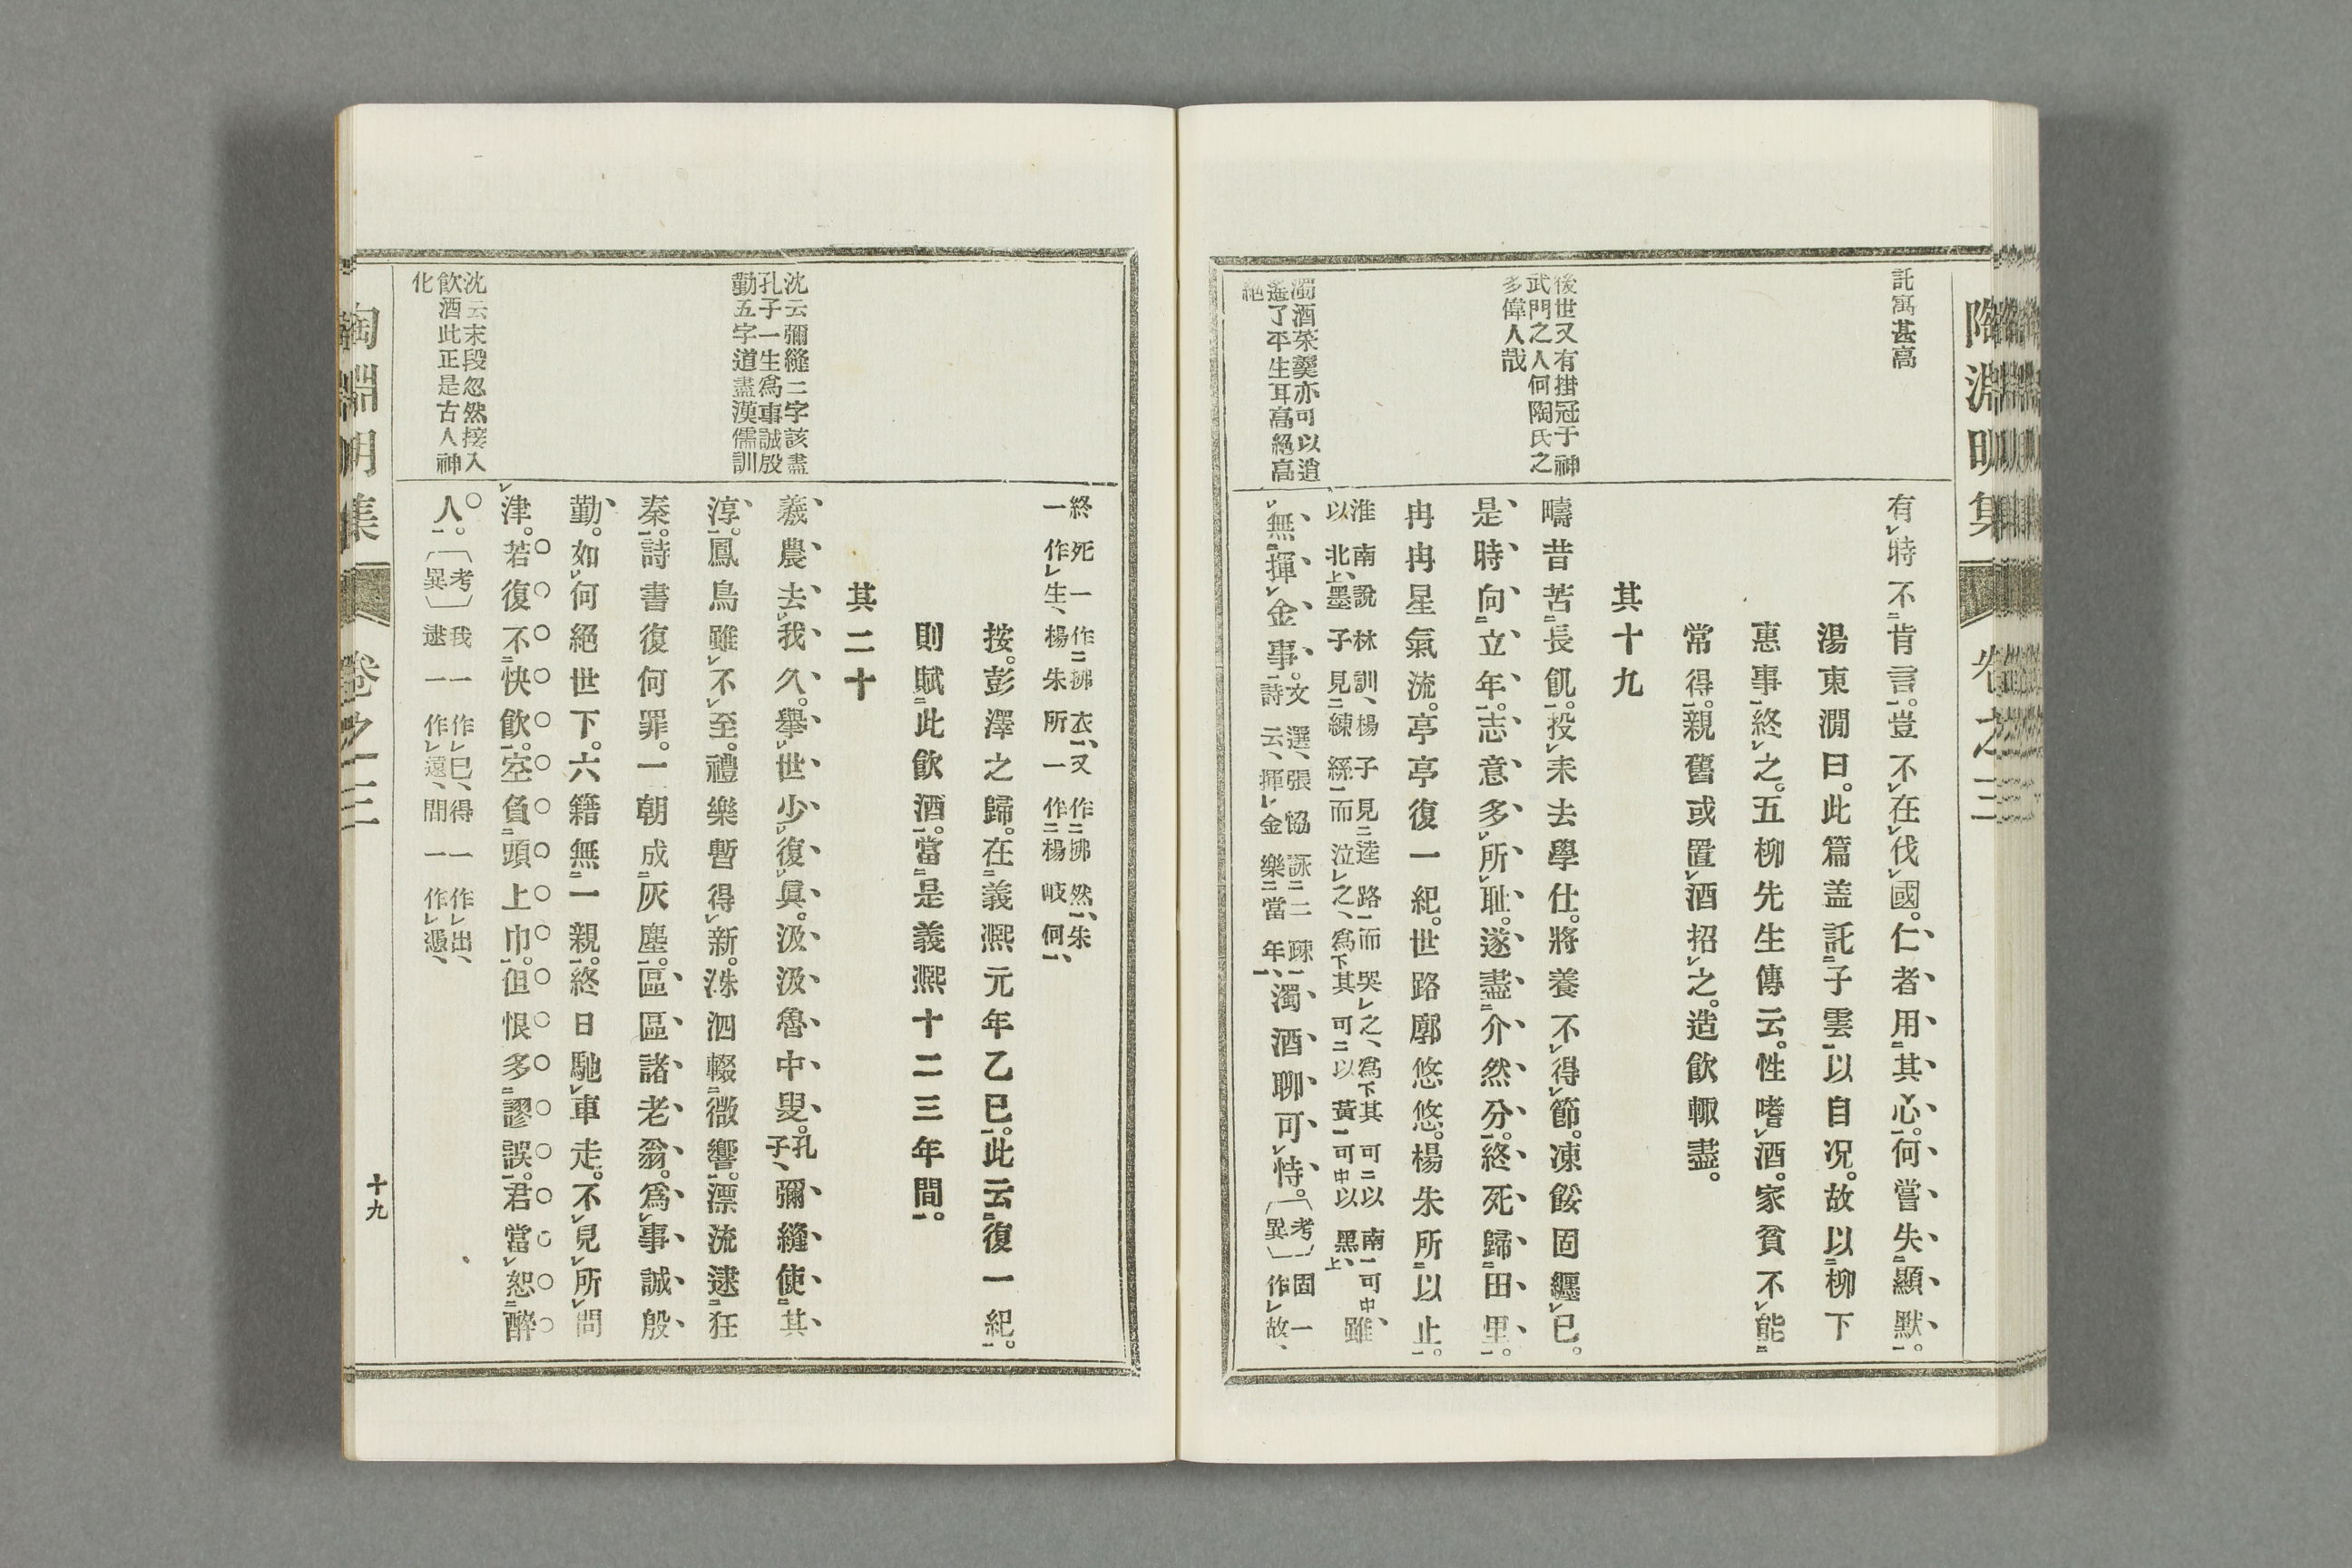 陶淵明集
卷之三
託寓甚高
有時不肯言。豈不在伐國。仁者用其心。何嘗失顯默。
湯東澗曰。此篇盖託子雲以自況。故以柳下
惠事終之。五柳先生傳云。性嗜酒。家貧不能
常得。親舊或置酒招之。造飲輒盡。
其十九
後世又有掛冠于神
武門之人何陶氏之
多偉人哉
疇昔苦長飢。投耒去學仕。將養不得節。凍餒固纏已。
是時向立年。志意多所耻。遂盡介然分。終死歸田里。
冉冉星氣流。亭亭復一紀。世路廓悠悠。楊朱所以止。
淮南說林訓、楊子見逵路而哭之、爲其可以南可
以北、墨子見練絲而泣之、爲其可以黃可以黑、雖
濁酒菜羹亦可以逍
遙了平生耳高絕高
絕
無揮金事。文選、張協詠二疎
詩云、揮金樂當年、濁酒聊可恃。〔考異〕固一
作故、
終死一作拂衣、又作拂然、朱
一作生、楊朱所一作楊岐何、
按。彭澤之歸。在義熙元年乙巳。此云復一紀。
則賦此飲酒。當是義熙十二三年間。
其二十
沈云彌縫二字該盡
孔子一生爲事誠殷
勤五字道盡漢儒訓
羲農去我久。擧世少復眞。汲汲魯中叟。孔子、彌縫使其
淳。鳳鳥雖不至。禮樂暫得新。洙泗輟微響。漂流逮狂
秦。詩書復何罪。一朝成灰塵。區區諸老翁。爲事誠殷
勤。如何絕世下。六籍無一親。終日馳車走。不見所問
津。若復不快飲。空負頭上巾。但恨多謬誤。君當恕醉
沈云末段忽然接入
飲酒此正是古人神
化
人。〔考異〕我一作已、得一作出、
逮一作遠、間一作憑、
陶淵明集
卷之三
十九